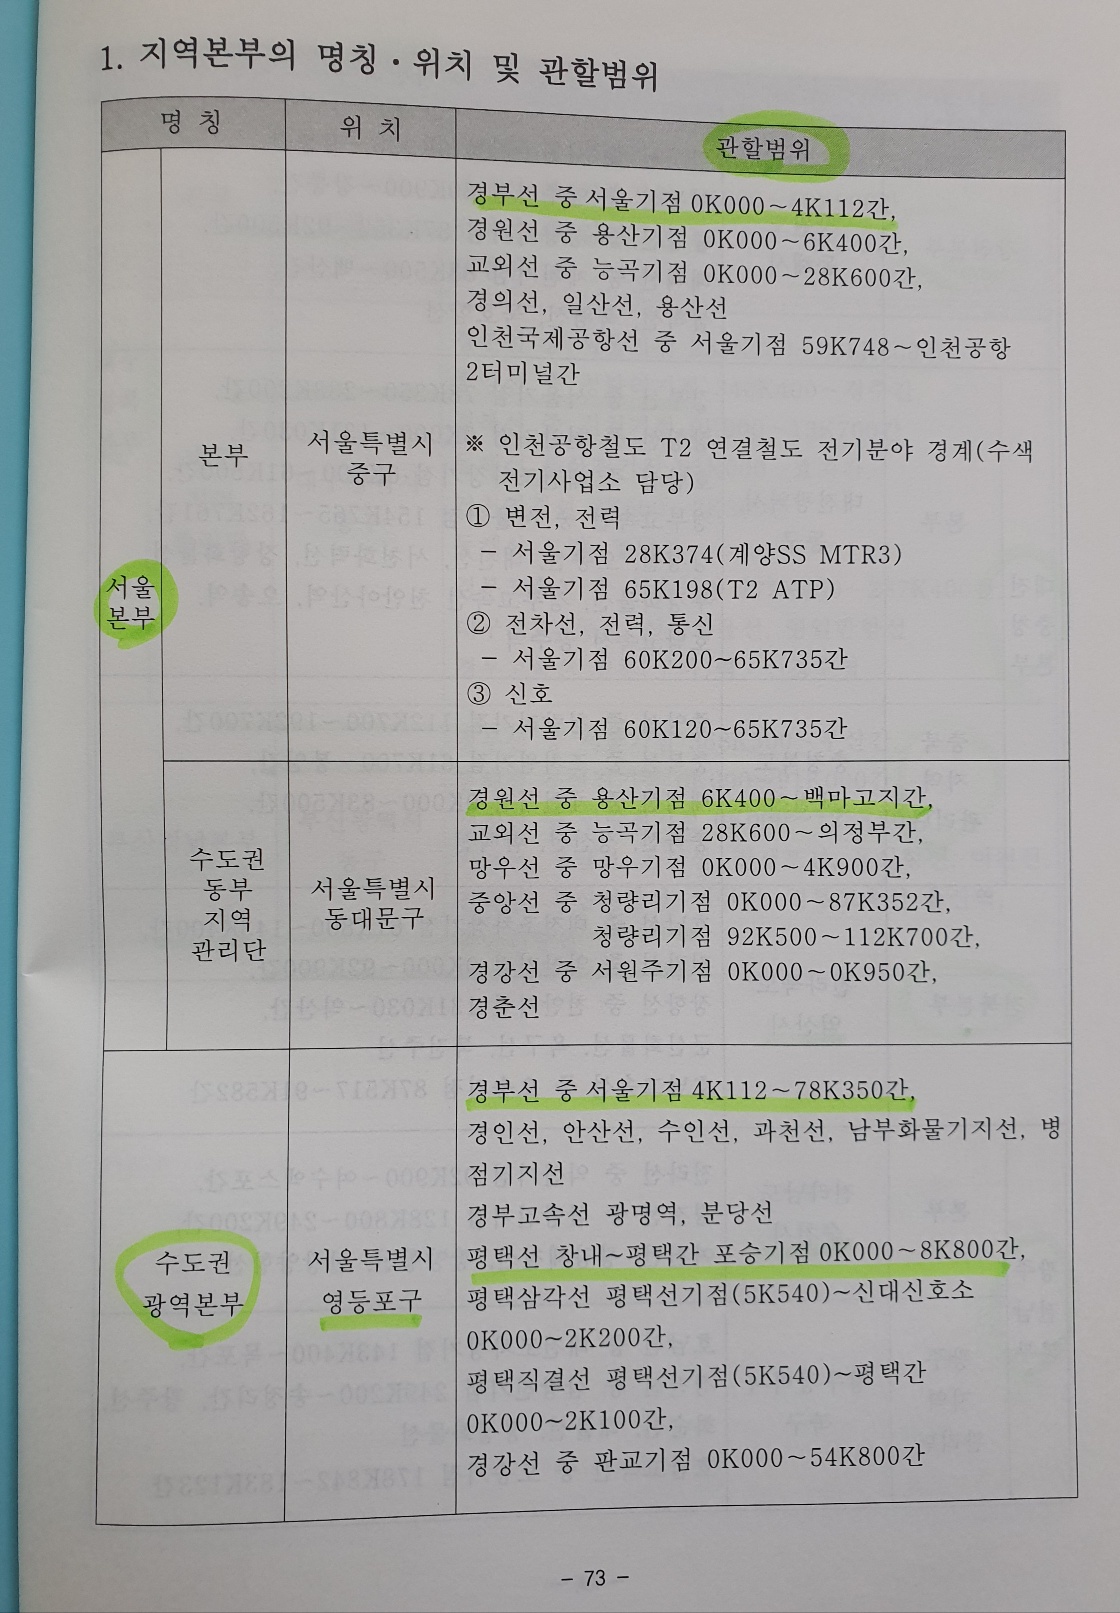 1. 지역본부의 명칭·위치 및 관할범위
명 칭
위 치
관할범위
서울
본부
본부
서울특별시
중구
경부선 중 서울기점 0K000~4K112간,
경원선 중 용산기점 0K000~6K400간,
교외선 중 능곡기점 0K000~28K600간,
경의선, 일산선, 용산선
인천국제공항선 중 서울기점 59K748~인천공항
2터미널간
※ 인천공항철도 T2 연결철도 전기분야 경계(수색
전기사업소 담당)
① 변전, 전력
- 서울기점 28K374(계양SS MTR3)
- 서울기점 65K198(T2 ATP)
② 전차선, 전력, 통신
- 서울기점 60K200~65K735간
③ 신호
- 서울기점 60K120~65K735간
수도권
동부
지역
관리단
서울특별시
동대문구
경원선 중 용산기점 6K400~백마고지간,
교외선 중 능곡기점 28K600~의정부간,
망우선 중 망우기점 0K000~4K900간,
중앙선 중 청량리기점 0K000~87K352간,
청량리기점 92K500~112K700간,
경강선 중 서원주기점 0K000~0K950간,
경춘선
수도권
광역본부
서울특별시
영등포구
경부선 중 서울기점 4K112~78K350간,
경인선, 안산선, 수인선, 과천선, 남부화물기지선, 병
점기지선
경부고속선 광명역, 분당선
평택선 창내~평택간 포승기점 0K000~8K800간,
평택삼각선 평택선기점(5K540)~신대신호소
0K000~2K200간,
평택직결선 평택선기점(5K540)~평택간
0K000~2K100간,
경강선 중 판교기점 0K000~54K800간
- 73 -